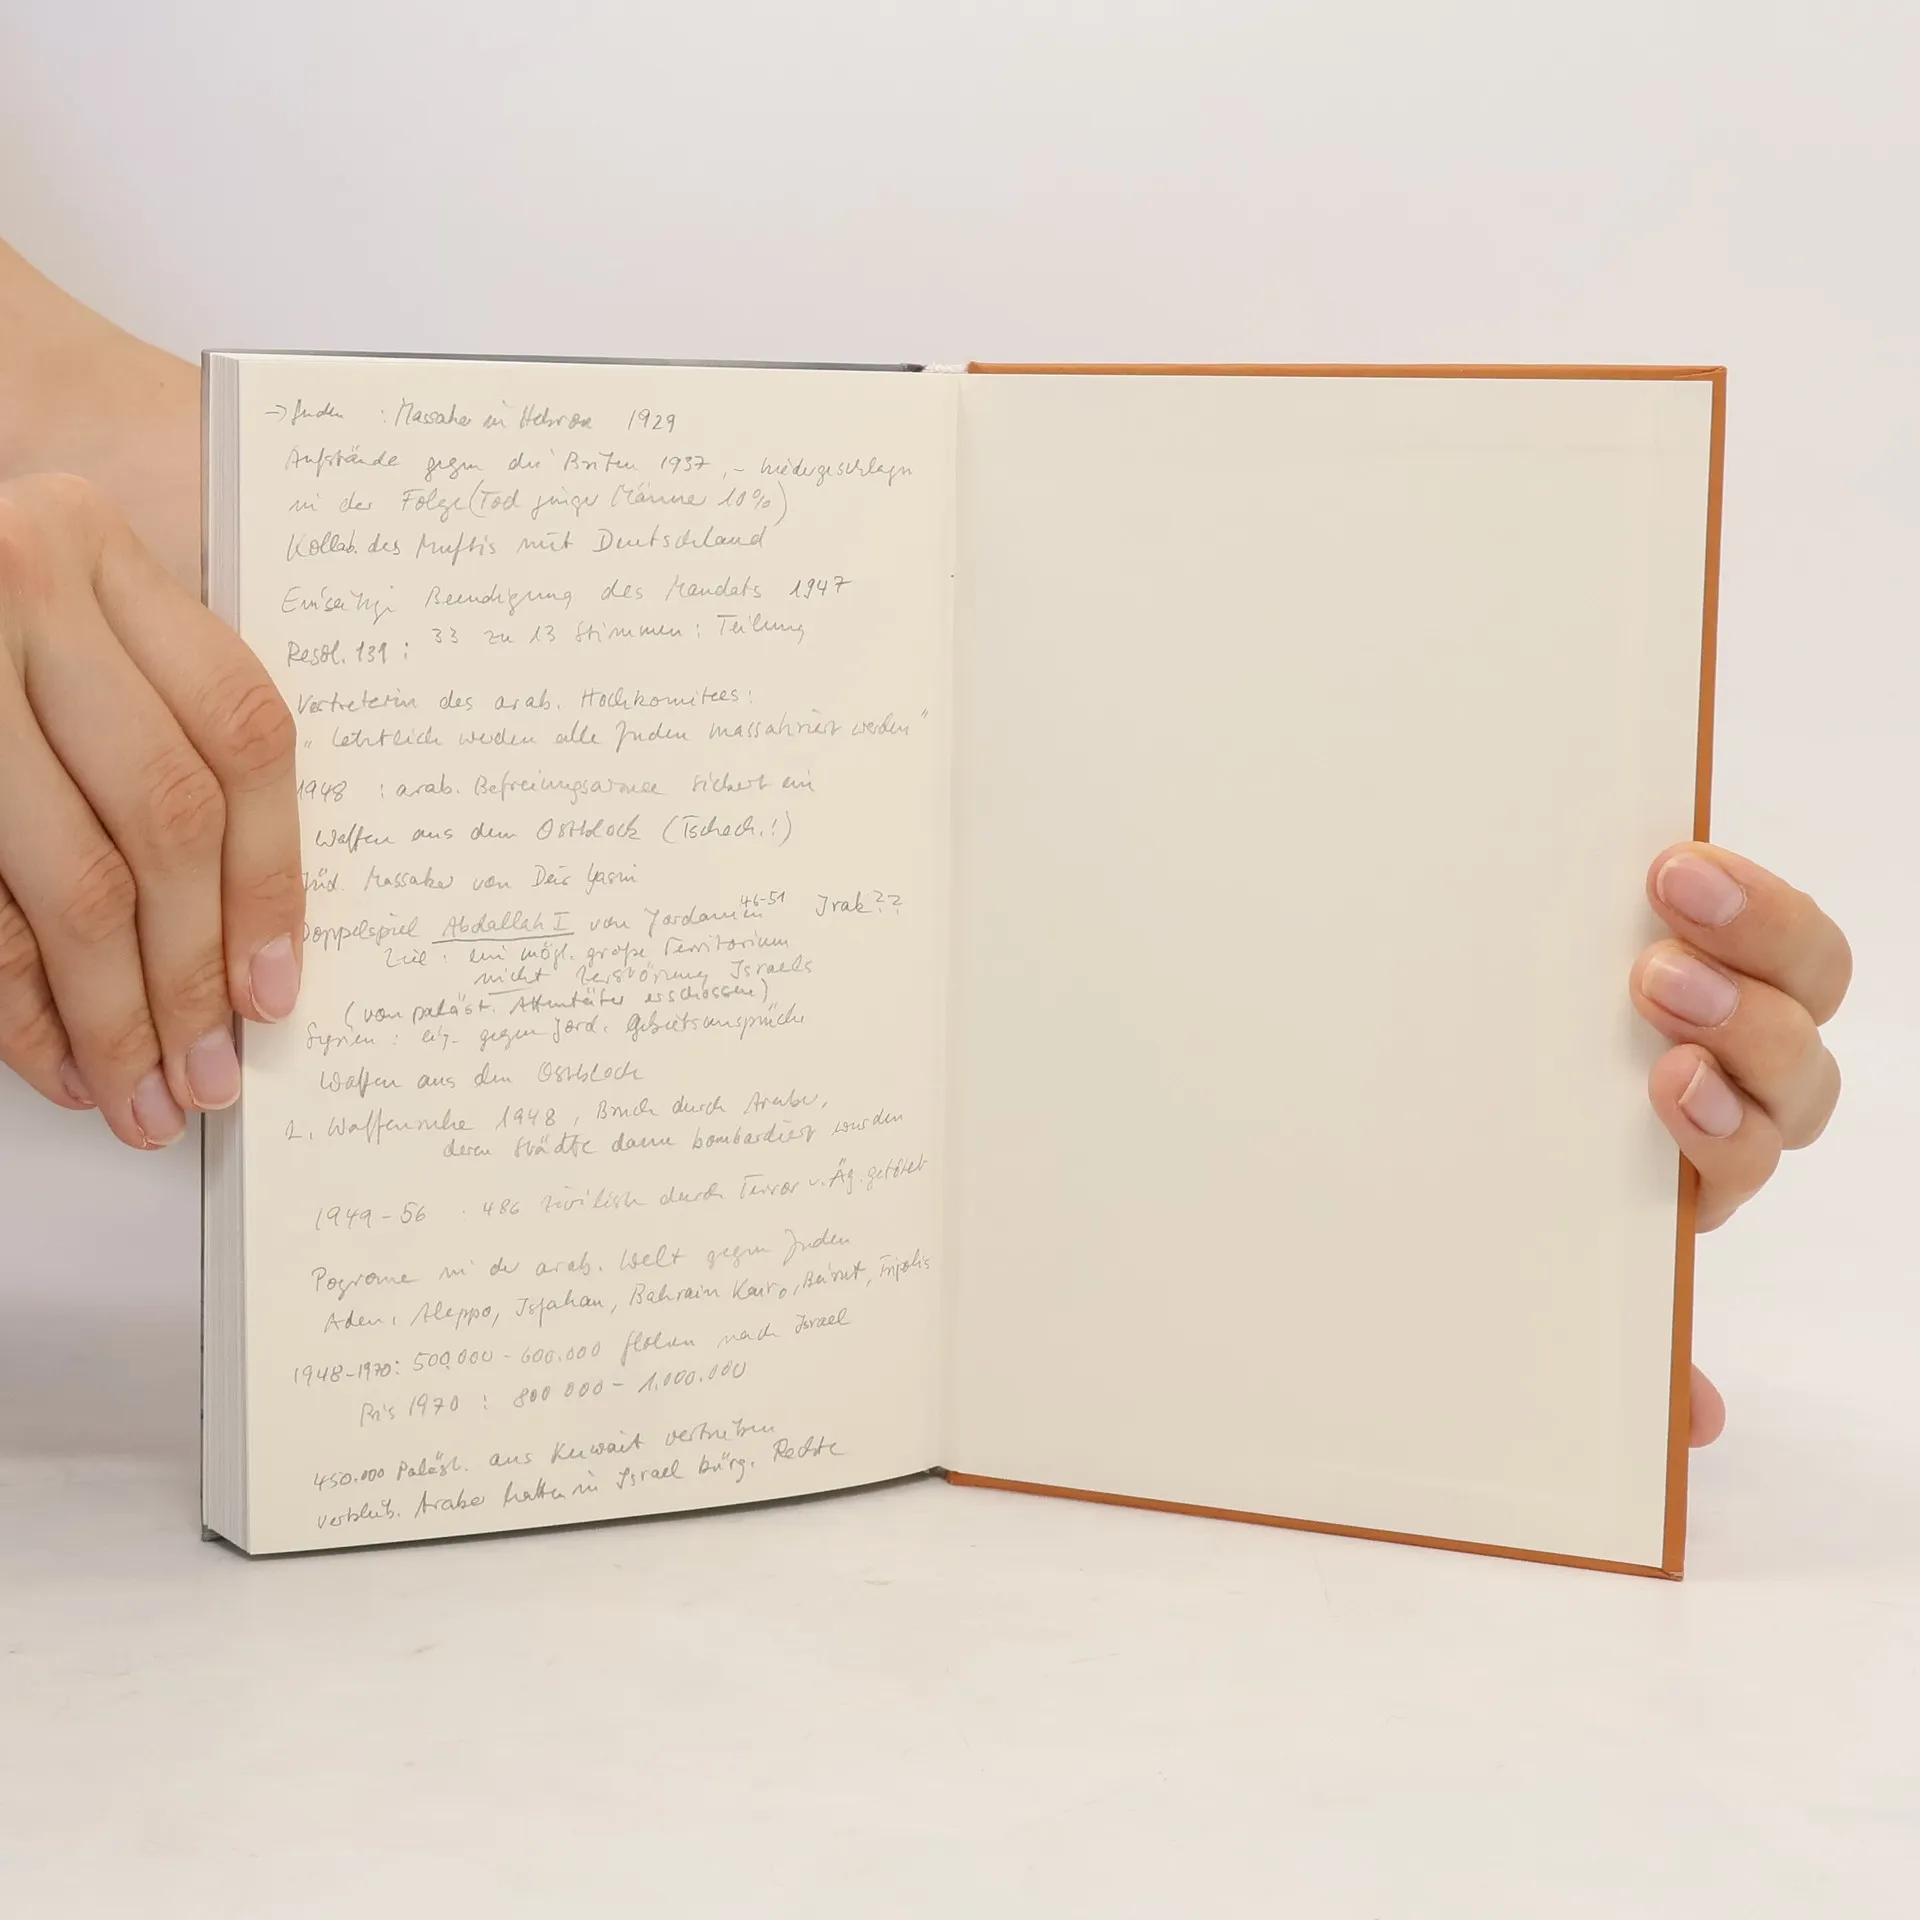 → Juden : Massaker in Hebron 1929
Aufstände gegen die Briten 1937, – niedergeschlagen
in der Folge (Tod junger Männer 10%)
Kollab. des Muftis mit Deutschland
Einseitige Beendigung des Mandats 1947
Resol. 131 : 33 zu 13 Stimmen : Teilung
Vertreterin des arab. Hochkomitees:
"letztlich werden alle Juden massakriert werden"
1948 : arab. Befreiungsarmee sickert ein
Waffen aus dem Ostblock (Tschech.!)
Jüd. Massaker von Deir Yasin
Doppelspiel Abdallah I von Jordanien 46-51 Irak??
Ziel : ein mögl. große Territorium
nicht Zerstörung Israels
(von paläst. Attentäter erschossen)
Syrien : gegen Jord. Gebietsansprüche
Waffen aus dem Ostblock
2. Waffenruhe 1948, Bruch durch Araber,
deren Städte dann bombardiert wurden
1949-56 : 486 zivilisten durch Terror v. Äg. getötet
Pogrome in der arab. Welt gegen Juden
Aden, Aleppo, Isfahan, Bahrain Kairo, Beirut, Tripolis
1948-1970: 500.000 - 600.000 flohen nach Israel
Bis 1970 : 800 000 - 1.000.000
450.000 Paläst. aus Kuwait vertrieben
verblieb. Araber hatten in Israel bürg. Rechte